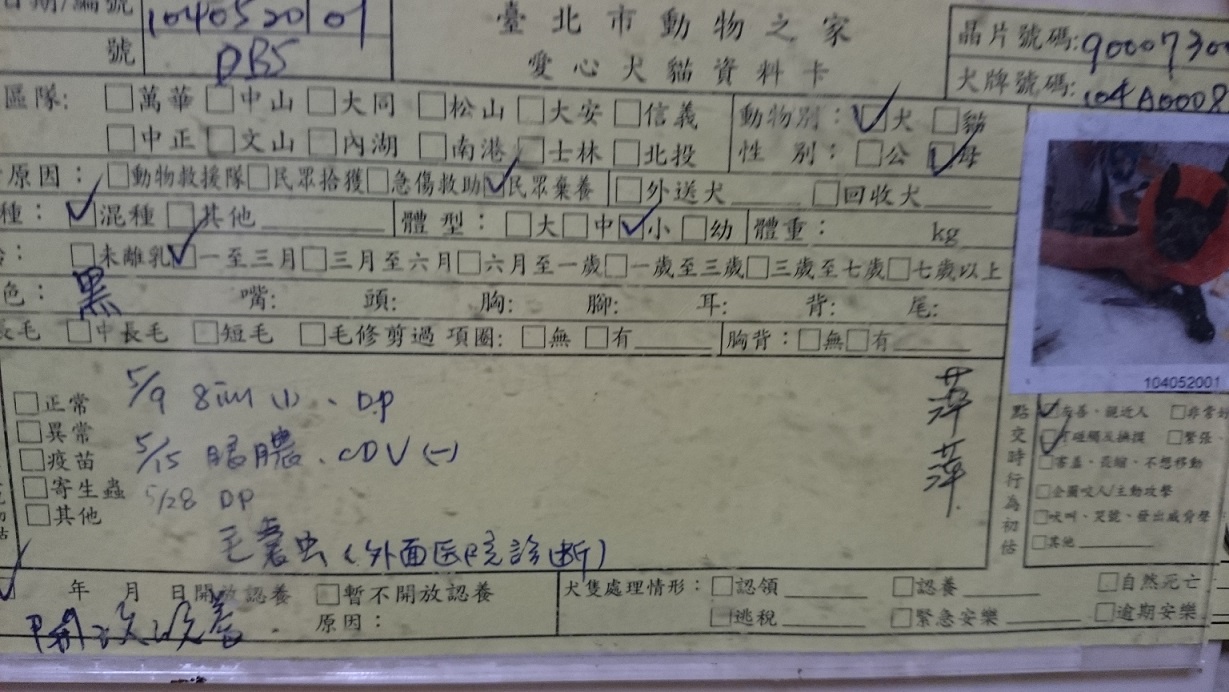 日期/編號 104052001
號 DBS
臺北市動物之家
愛心犬貓資料卡
晶片號碼:90007300
犬牌號碼:104A0008
區隊: □萬華 □中山 □大同 □松山 □大安 □信義
動物別: ☑犬 □貓
□中正 □文山 □內湖 □南港 □士林 □北投
性 別: □公 ☑母
原因: □動物救援隊 □民眾拾獲 □急傷救助 ☑民眾棄養 □外送犬 □回收犬
種: ☑混種 □其他
體型: □大 □中 ☑小 □幼
體重: kg
□未離乳 ☑一至三月 □三月至六月 □六月至一歲 □一歲至三歲 □三歲至七歲 □七歲以上
色: 黑 嘴: 頭: 胸: 腳: 耳: 背: 尾:
長毛 □中長毛 □短毛 □毛修剪過 項圈: □無 □有 胸背: □無 □有
104052001
□正常
□異常
□疫苗
□寄生蟲
□其他
5/9 8in1 (1)、DP 萍
5/15 眼膿、CDV(-) 萍
5/28 DP
毛囊虫(外面医院診断)
點交時行為初估
☑友善、親近人 □非常
☑可碰觸及撫摸 □緊張
□害羞、畏縮、不想移動
□企圖咬人/主動攻擊
□吠叫、哭號、發出威脅聲
□其他
年 月 日開放認養 □暫不開放認養
原因:
犬隻處理情形: □認領 □認養 □自然死亡
□逃稅 □緊急安樂 □逾期安樂